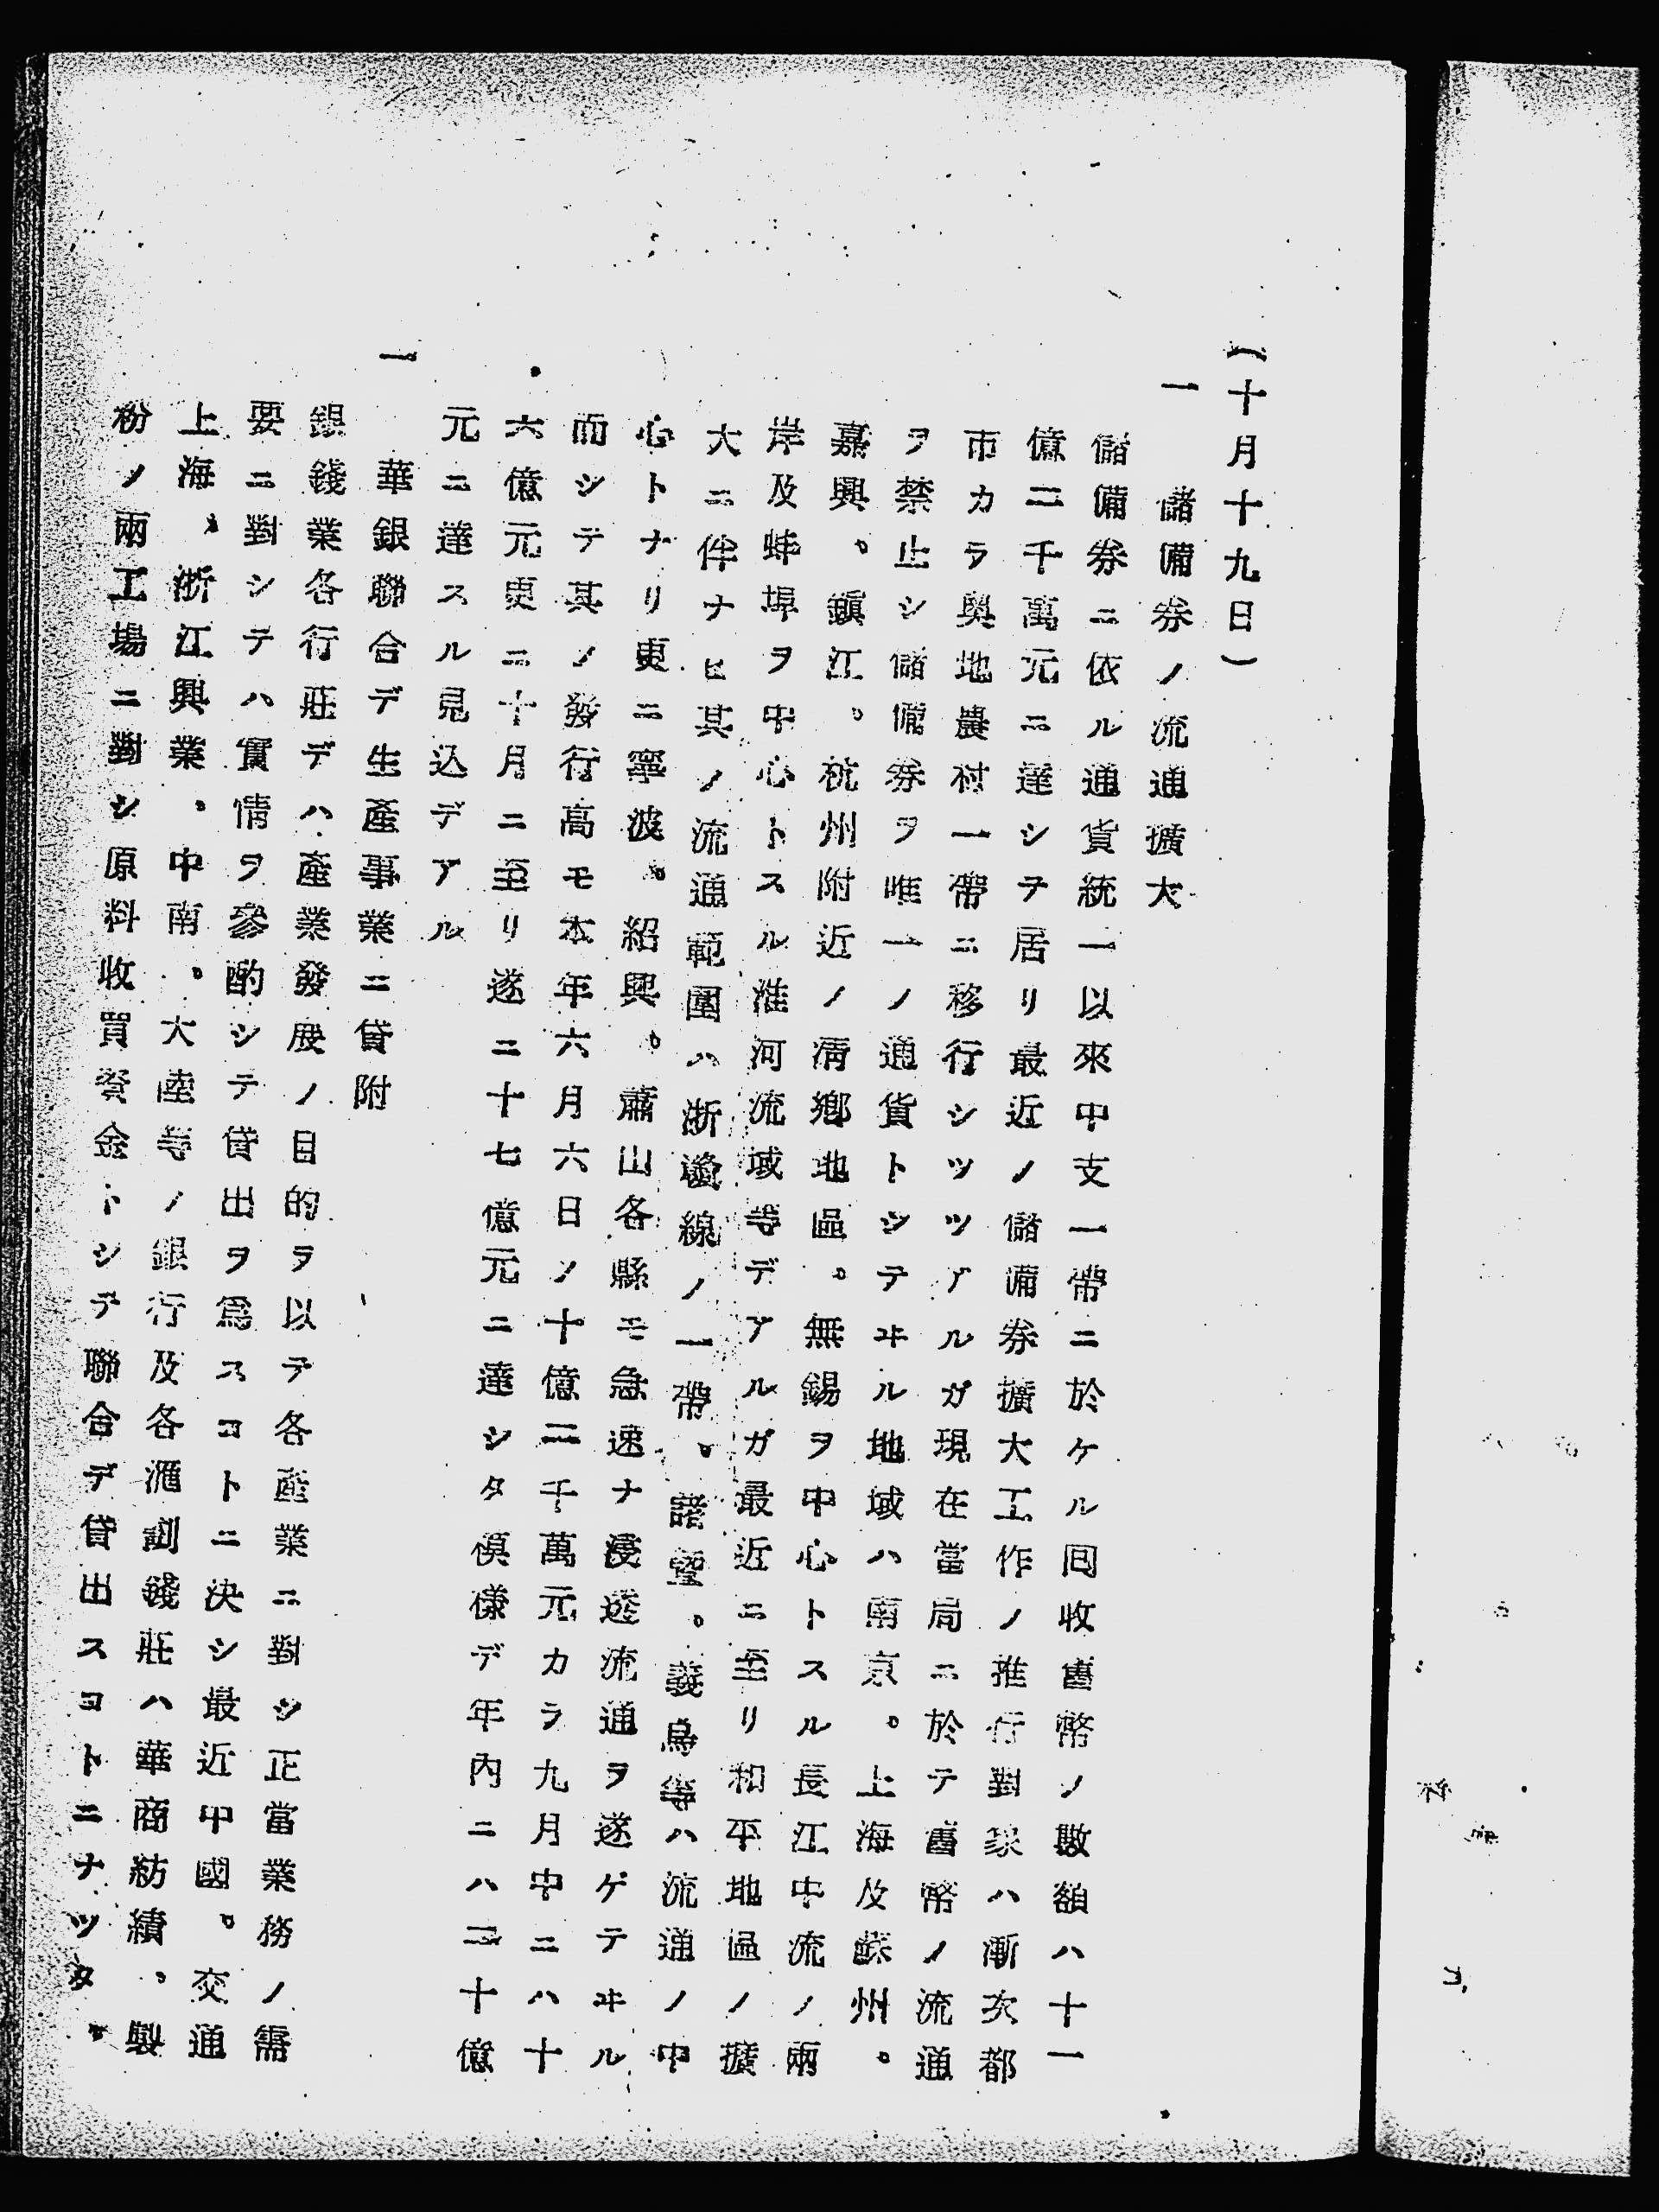 (十月十九日)
一　儲備券ノ流通擴大
儲備券ニ依ル通貨統一以來中支一帶ニ於ケル囘收舊幣ノ數額ハ十一
億二千萬元ニ達シテ居リ最近ノ儲備券擴大工作ノ推行對象ハ漸次都
市カラ奧地農村一帶ニ移行シツツアルガ現在當局ニ於テ舊幣ノ流通
ヲ禁止シ儲備券ヲ唯一ノ通貨トシテヰル地域ハ南京。上海及蘇州。
嘉興。鎭江。杭州附近ノ淸鄕地區。無錫ヲ中心トスル長江中流ノ兩
岸及蚌埠ヲ中心トスル淮河流域等デアルガ最近ニ至リ和平地區ノ擴
大ニ伴ナヒ其ノ流通範圍ハ浙贛線ノ一帶。諸曁。義烏等ハ流通ノ中
心トナリ更ニ寧波。紹興。蕭山各縣モ急速ナ浸透流通ヲ遂ゲテヰル
而シテ其ノ發行高モ本年六月六日ノ十億二千萬元カラ九月中ニハ十
六億元更ニ十月ニ至リ遂ニ十七億元ニ達シタ模樣デ年內ニハ二十億
元ニ達スル見込デアル
一　華銀聯合デ生產事業ニ貸附
銀錢業各行莊デハ產業發展ノ目的ヲ以テ各產業ニ對シ正當業務ノ需
要ニ對シテハ實情ヲ參酌シテ貸出ヲ爲スコトニ決シ最近中國。交通
上海。浙江興業。中南。大陸等ノ銀行及各滙劃錢莊ハ華商紡績、製
粉ノ兩工場ニ對シ原料收買資金トシテ聯合デ貸出スコトニナツタ。